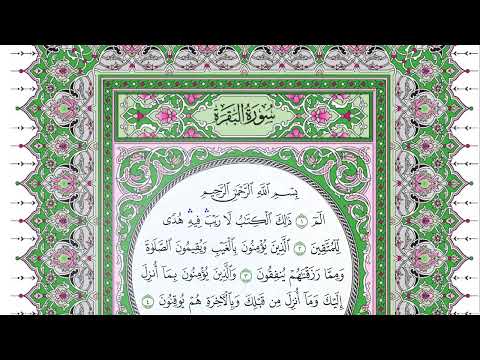 سُورَةُ البَقَرَةِ
بِسْمِ اللَّهِ الرَّحْمَٰنِ الرَّحِيمِ
الٓمٓ ١ ذَٰلِكَ الْكِتَٰبُ لَا رَيْبَ ۛ فِيهِ ۛ هُدًى
لِّلْمُتَّقِينَ ٢ الَّذِينَ يُؤْمِنُونَ بِالْغَيْبِ وَيُقِيمُونَ الصَّلَوٰةَ
وَمِمَّا رَزَقْنَٰهُمْ يُنفِقُونَ ٣ وَالَّذِينَ يُؤْمِنُونَ بِمَآ أُنزِلَ
إِلَيْكَ وَمَآ أُنزِلَ مِن قَبْلِكَ وَبِالْءَاخِرَةِ هُمْ يُوقِنُونَ ٤